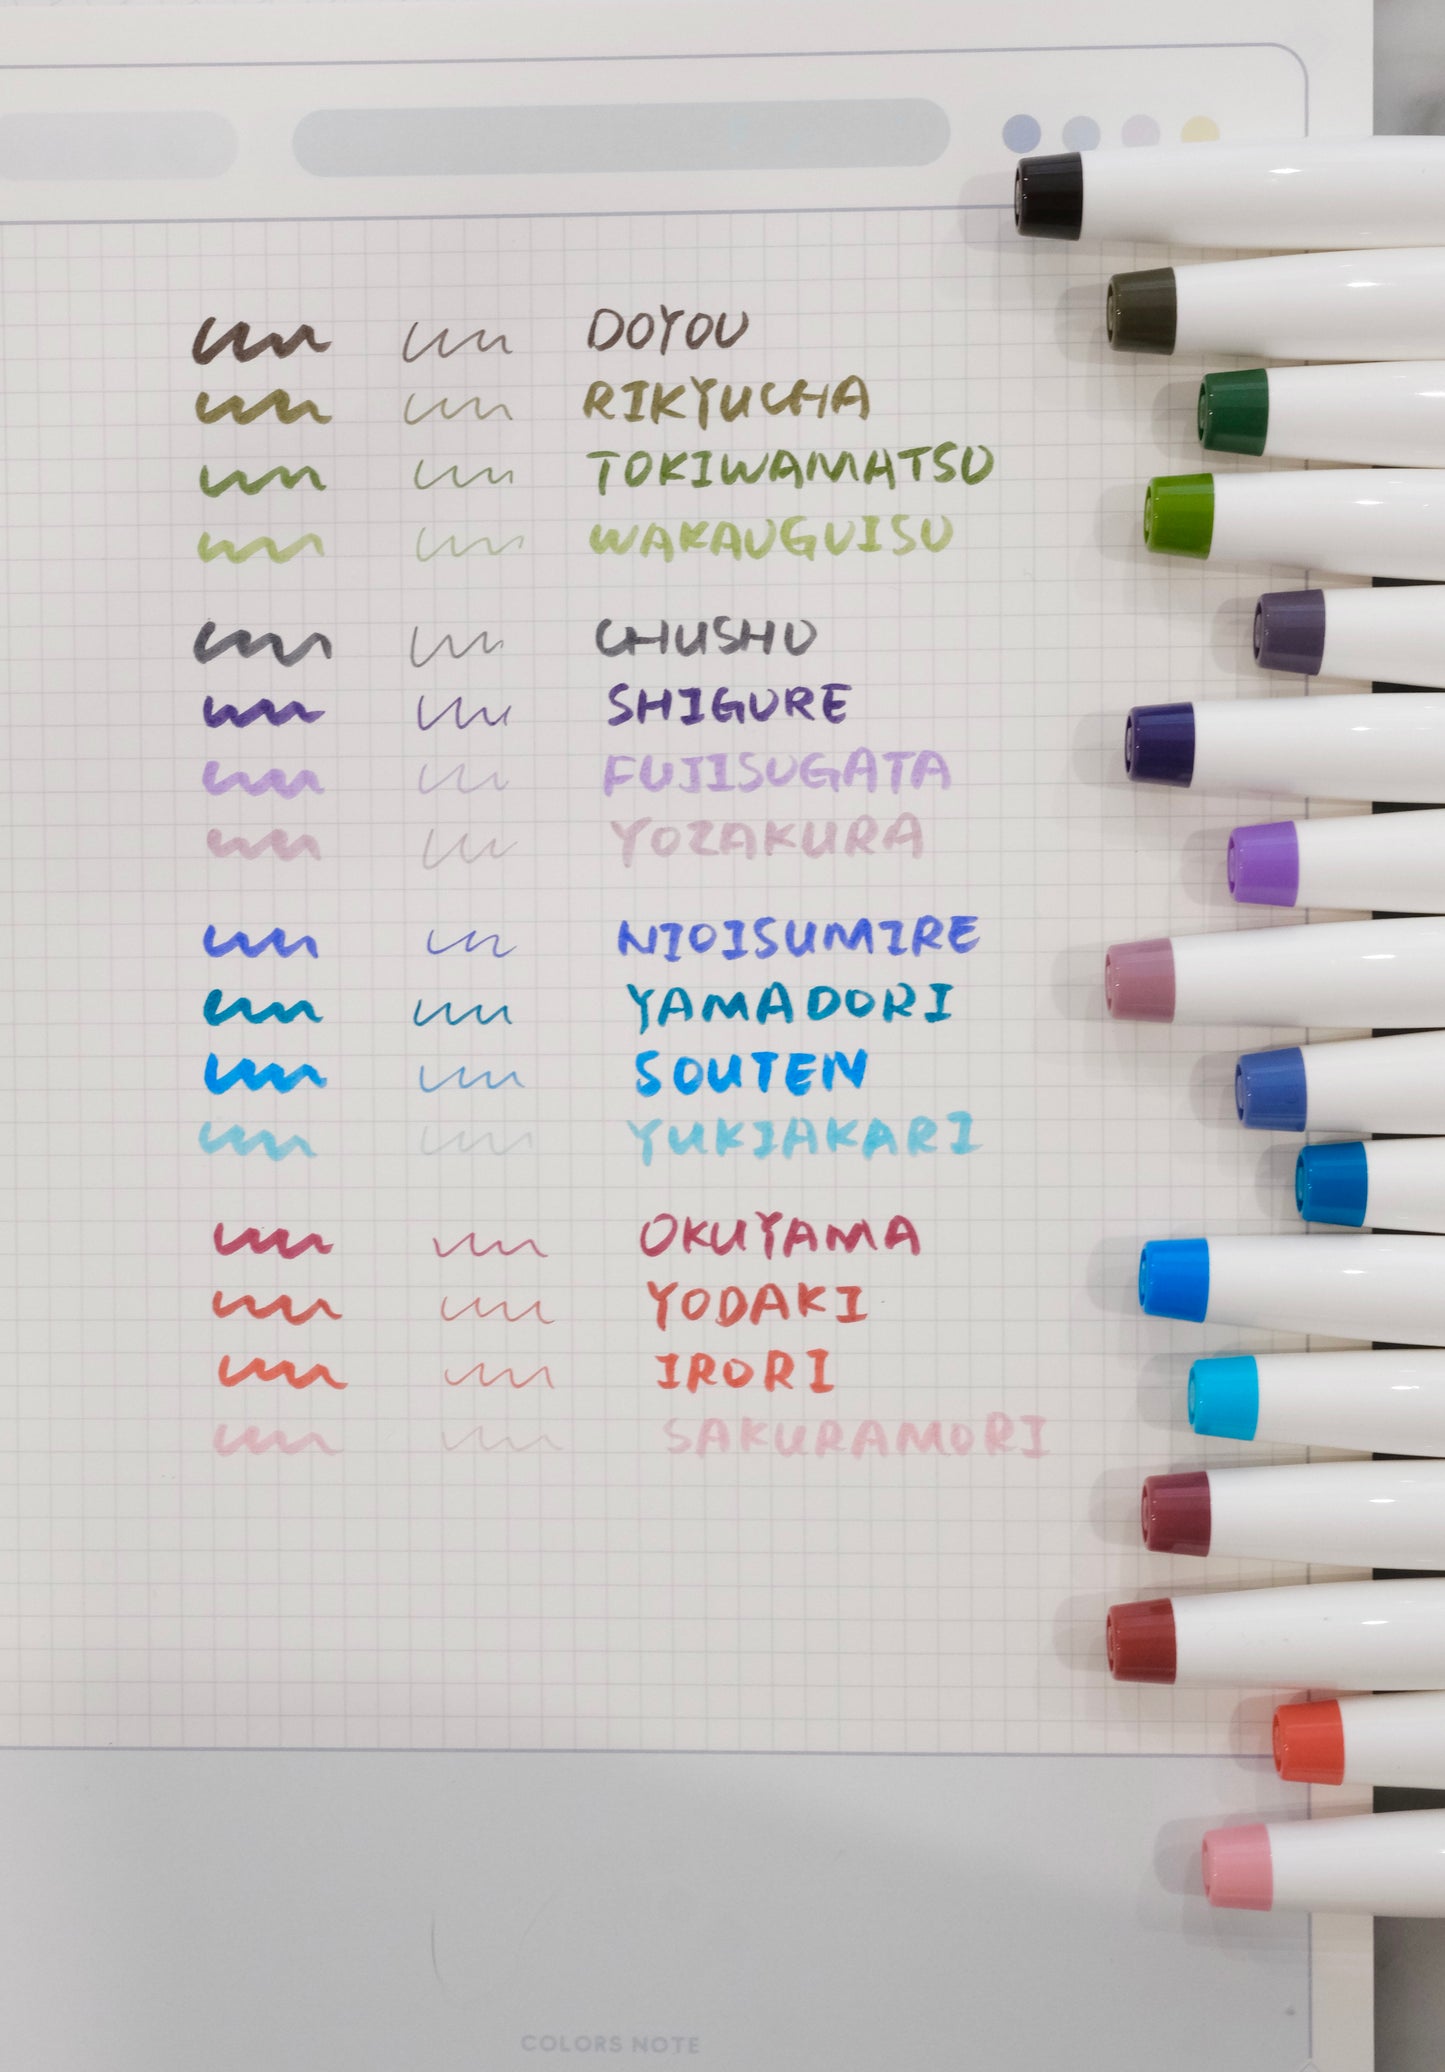 DOYOU
RIKYUCHA
TOKIWAMATSU
WAKAUGUISU
CHUSHU
SHIGURE
FUJISUGATA
YOZAKURA
NIOISUMIRE
YAMADORI
SOUTEN
YUKIAKARI
OKUYAMA
YODAKI
IRORI
SAKURAMORI
COLORS NOTE